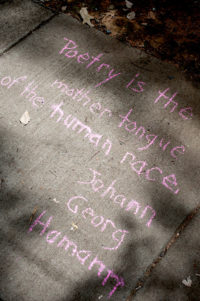 Poetry is the
mother tongue
of the human race.
Johann
Georg
Hamann